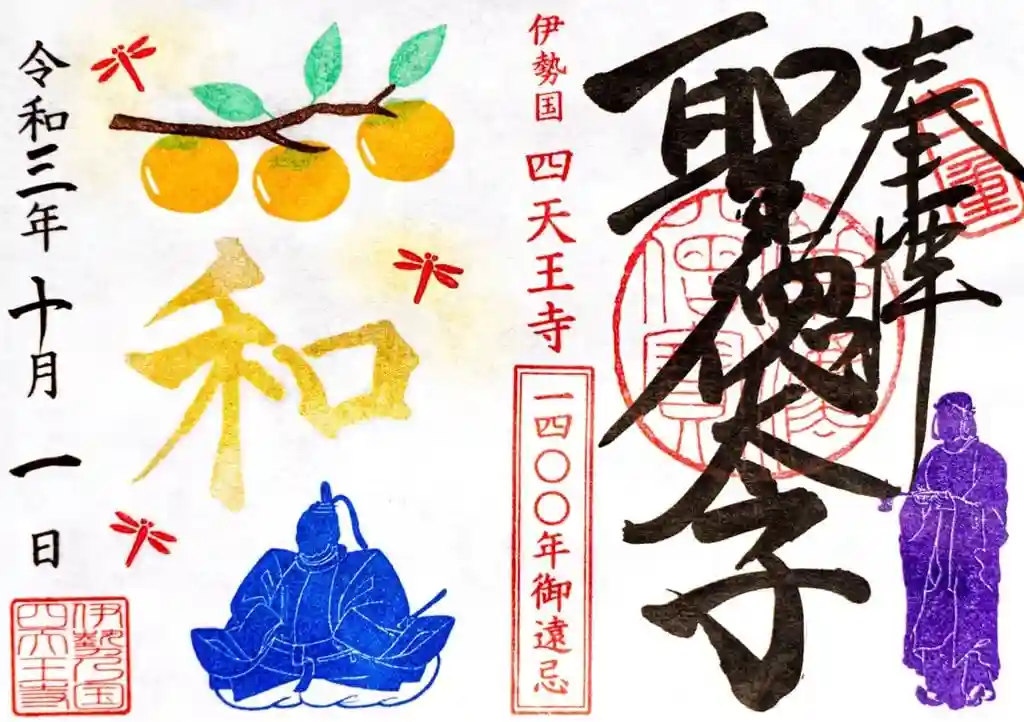 奉拝
聖徳太子
三重
仏法僧宝
伊勢国 四天王寺
一四〇〇年御遠忌
和
令和三年 十月 一日
伊勢乃国
四天王寺